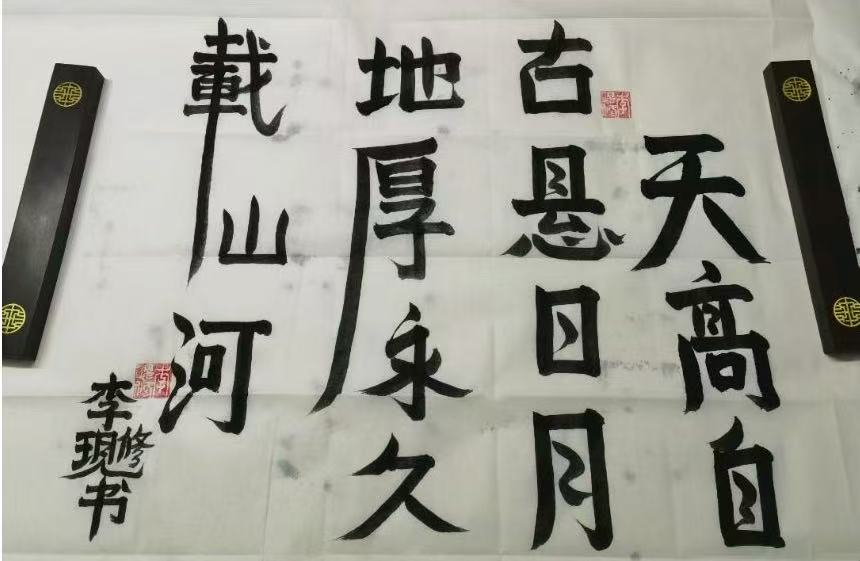 天高自
古悬日月
地厚永久
載山河
李修現书